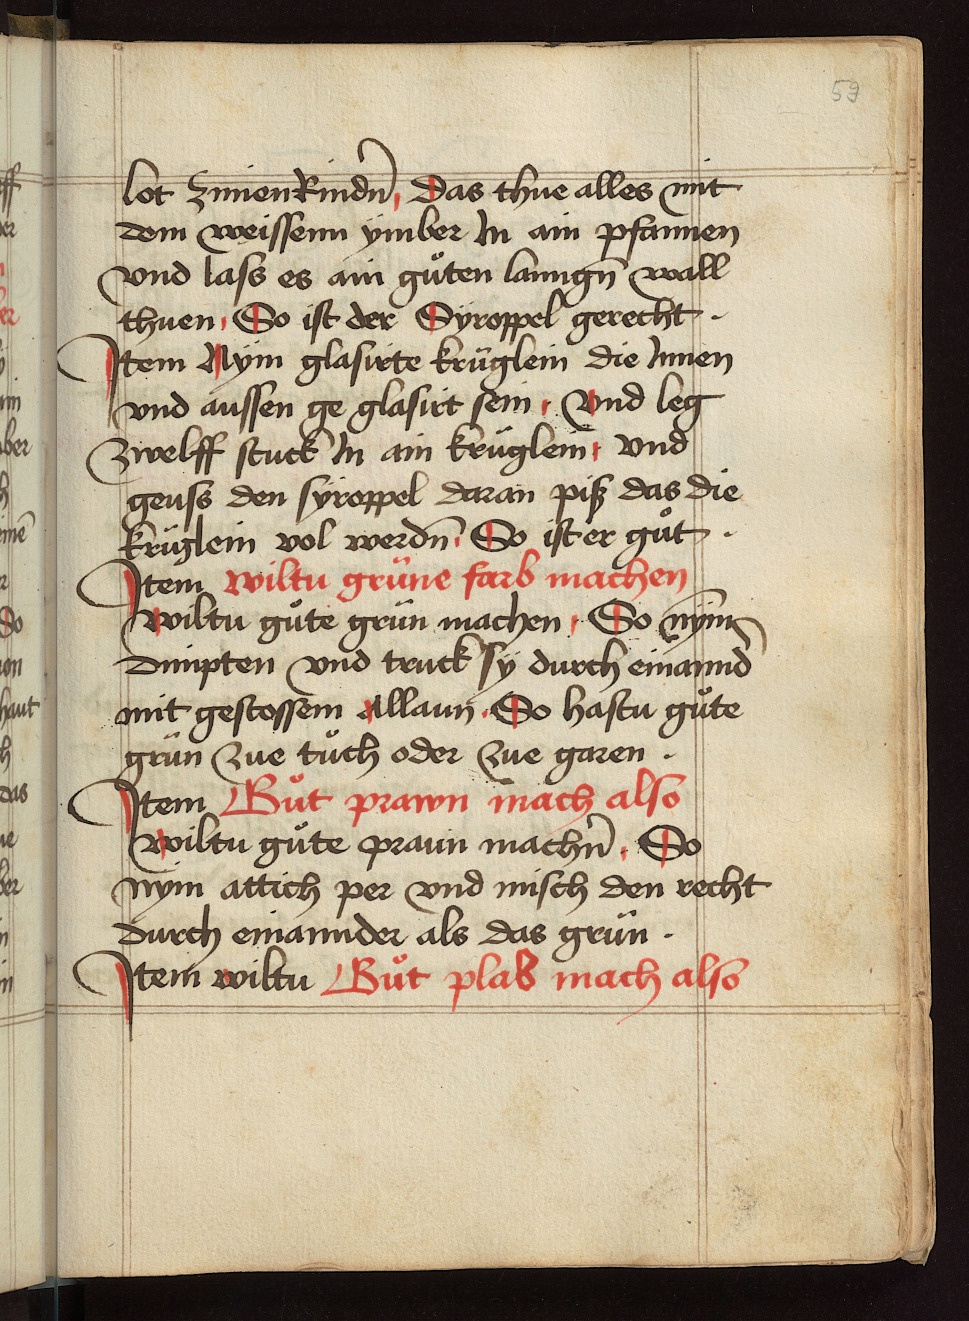 59
lot ZimenRindn̄, Das thue alles mit
dem weissenn ymber In ain pfannen
vnd lass es ain gůten lanngn̄ wall
thuen, So ist der Syroppel gerecht .
Item Nym glasirte krüglein die Innen
vnd aussen ge glasirt sein, Vnd leg
Zwelff stuck In ain krüglein, vnd
geuss den syroppel daran piß das die
krüglein vol werdn̄, So ist er gůt .
Item wiltu grüne farb machen
wiltu gůte grün machen, So nym
dinpten vnd truck sy durch einannd
mit gestossem Allaun, So hastu gůte
grün Zue tůch oder Zue garen .
Item Gůt prawn mach also
wiltu gůte praun machn̄, So
nym attich per vnd misch den recht
durch einannder als das grün .
Item wiltu Gůt plab mach also